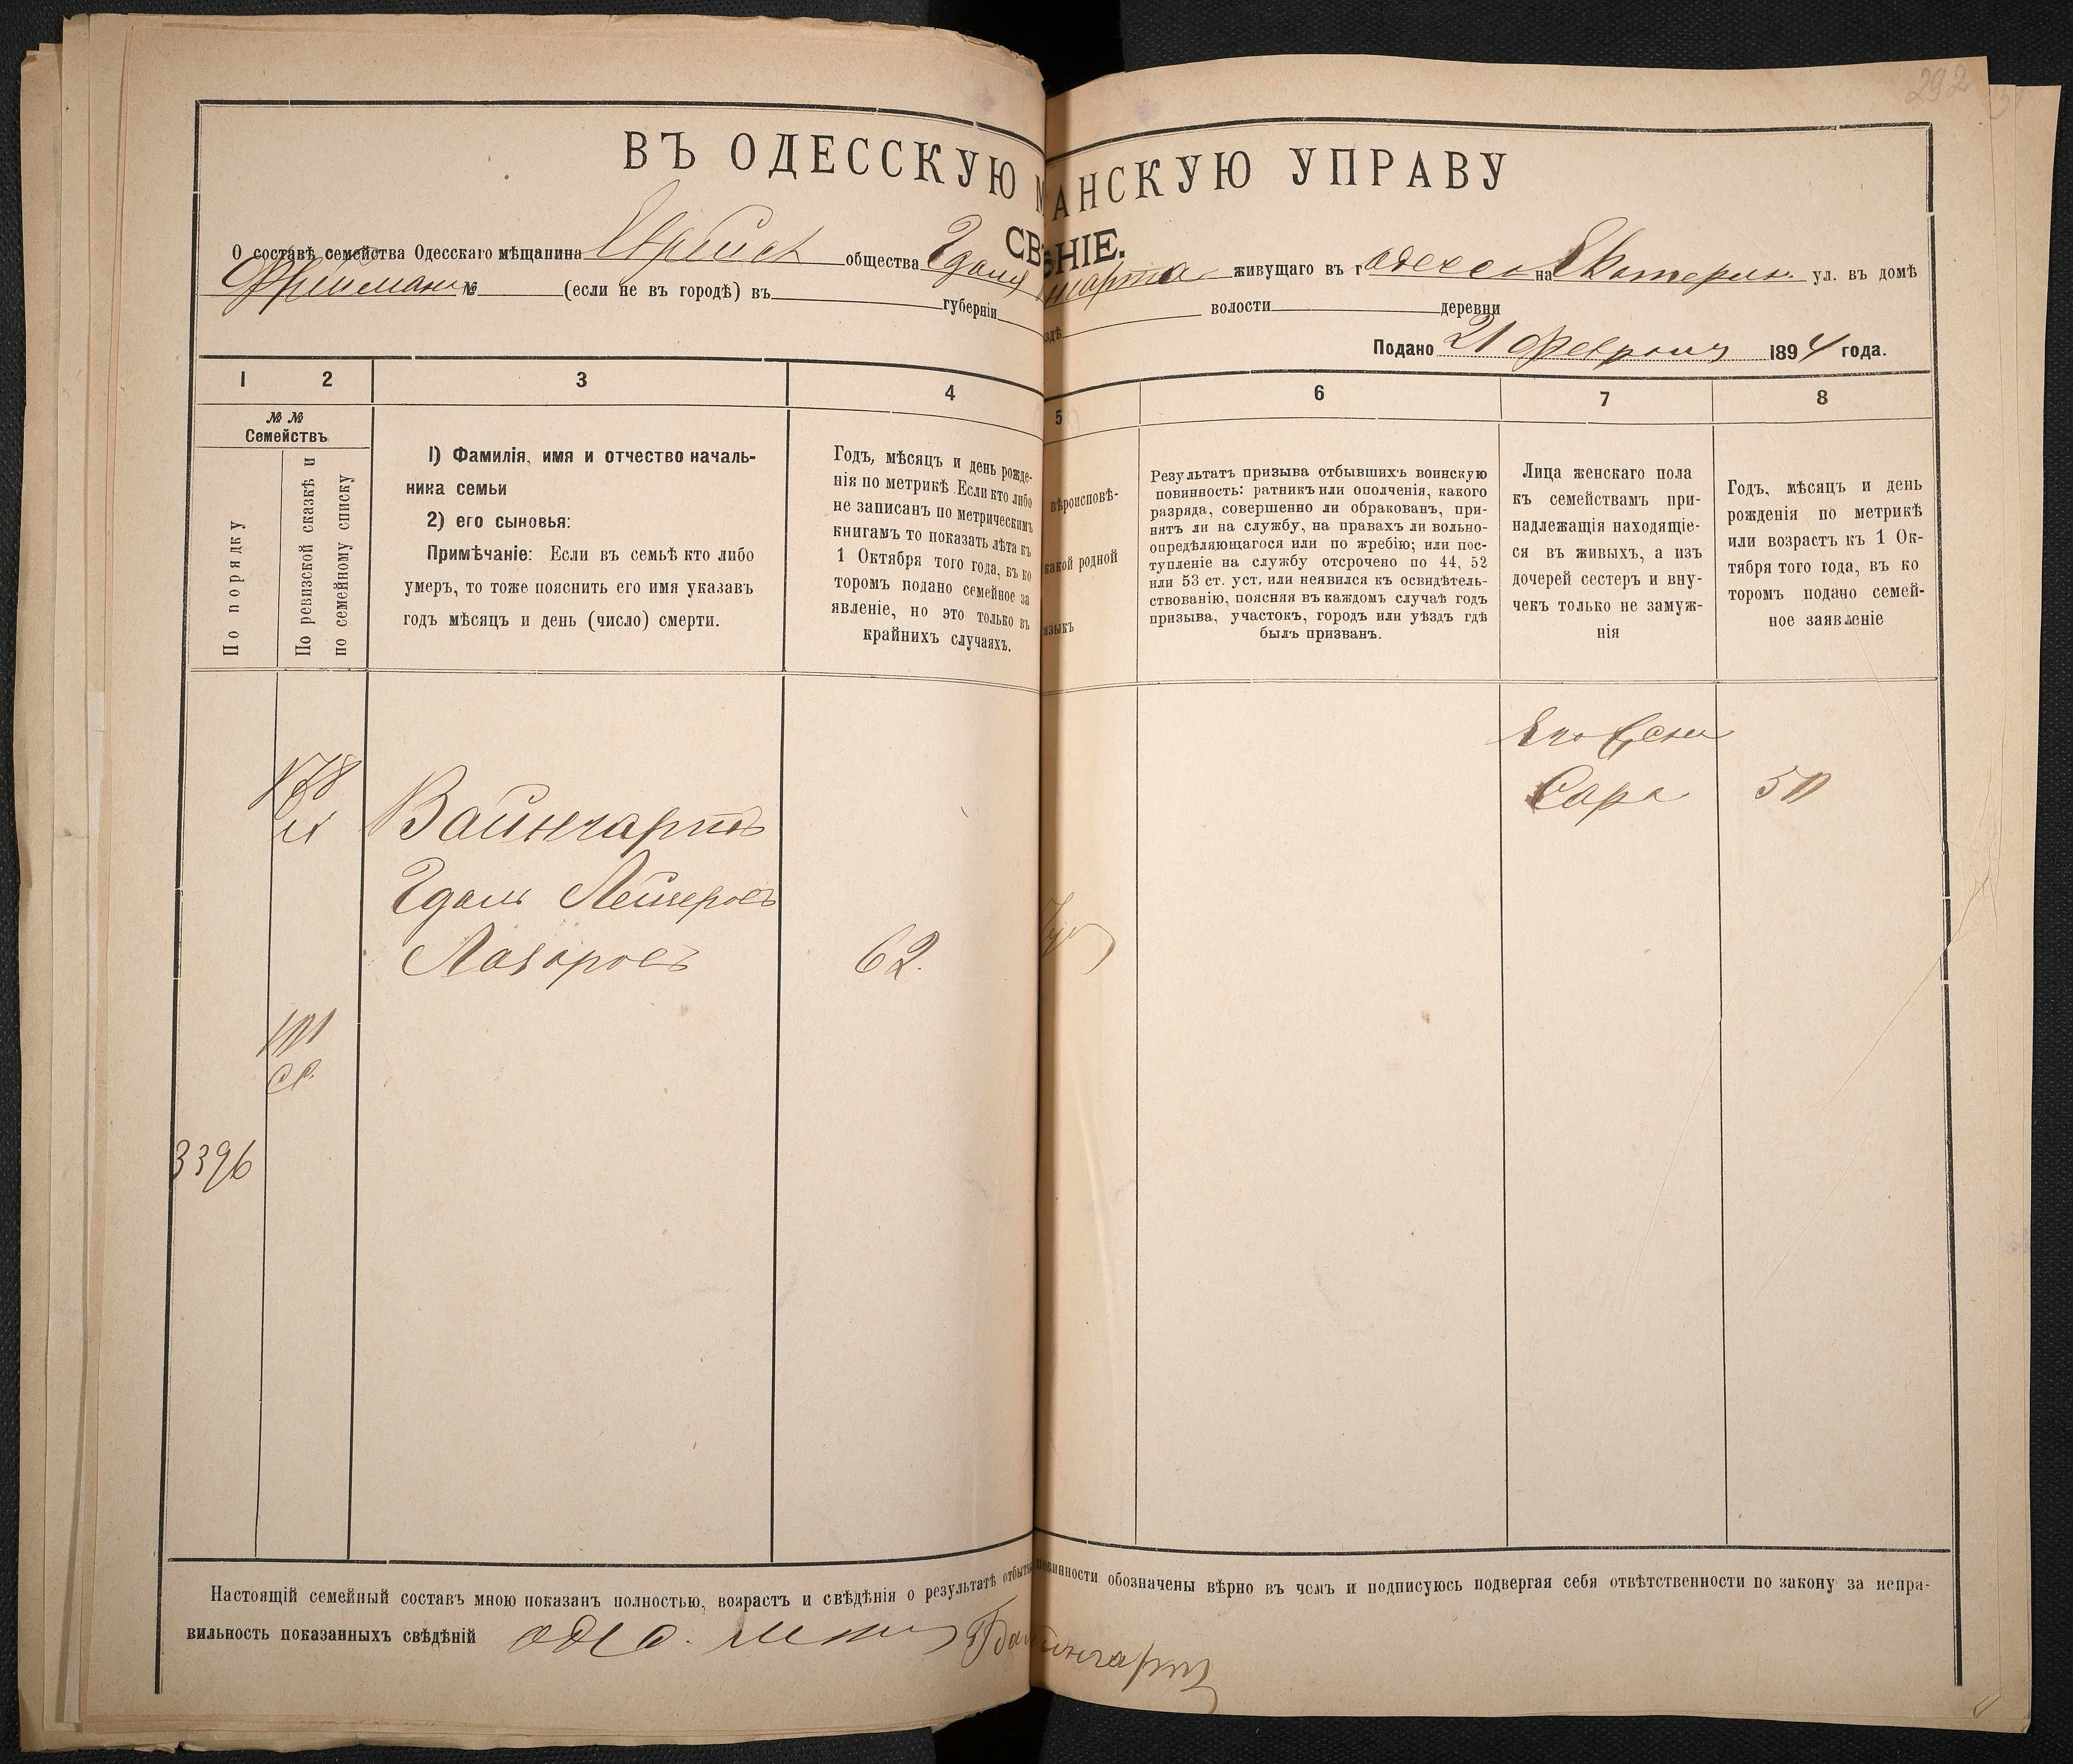 292
ВЪ ОДЕССКУЮ М АНСКУЮ УПРАВУ
СВ НІЕ.
О составѣ семейства Одесскаго мѣщанина Еврейск общества Гдаля живущаго въ г Одессе на Екатерин. ул. въ домѣ
Фрейман № (если не въ городѣ) въ губерніи здѣ волости деревни
Подано 21 Февраля 1894 года.
1 2 3 4 5 6 7 8
№ №
Семействъ
По порядку
По ревизской сказкѣ и
по семейному списку
1) Фамилія, имя и отчество началь-
ника семьи
2) его сыновья:
Примѣчаніе: Если въ семьѣ кто либо
умеръ, то тоже пояснить его имя указавъ
годъ мѣсяцъ и день (число) смерти.
Годъ, мѣсяцъ и день рожде-
нія по метрикѣ Если кто либо
не записанъ по метрическимъ
книгамъ то показать лѣта къ
1 Октября того года, въ ко
торомъ подано семейное за
явленіе, но это только въ
крайнихъ случаяхъ.
вѣроисповѣ-
какой родной
языкъ
Результатъ призыва отбывшихъ воинскую
повинность: ратникъ или ополченія, какого
разряда, совершенно ли обракованъ, при-
нятъ ли на службу, на правахъ ли вольно-
опредѣляющагося или по жребію; или пос-
тупленіе на службу отсрочено по 44, 52
или 53 ст. уст. или неявился къ освидѣтель-
ствованію, поясняя въ каждомъ случаѣ годъ
призыва, участокъ, городъ или уѣздъ гдѣ
былъ призванъ.
Лица женскаго пола
къ семействамъ при-
надлежащія находящіе-
ся въ живыхъ, а изъ
дочерей сестеръ и вну-
чекъ только не замуж-
нія
Годъ, мѣсяцъ и день
рожденія по метрикѣ
или возрастъ къ 1 Ок-
тября того года, въ ко
торомъ подано семей-
ное заявленіе
Его жена
Сара 50
178
Вайнгартъ
Гдаль Лейзеровъ
Лазаровъ 62.
101
3396
Настоящій семейный составъ мною показанъ полностью, возрастъ и свѣдѣнія о результатѣ отбытія повинности обозначены вѣрно въ чемъ и подписуюсь подвергая себя отвѣтственности по закону за непра-
вильность показанныхъ свѣдѣній Одес. мещ Г Вайнгартъ